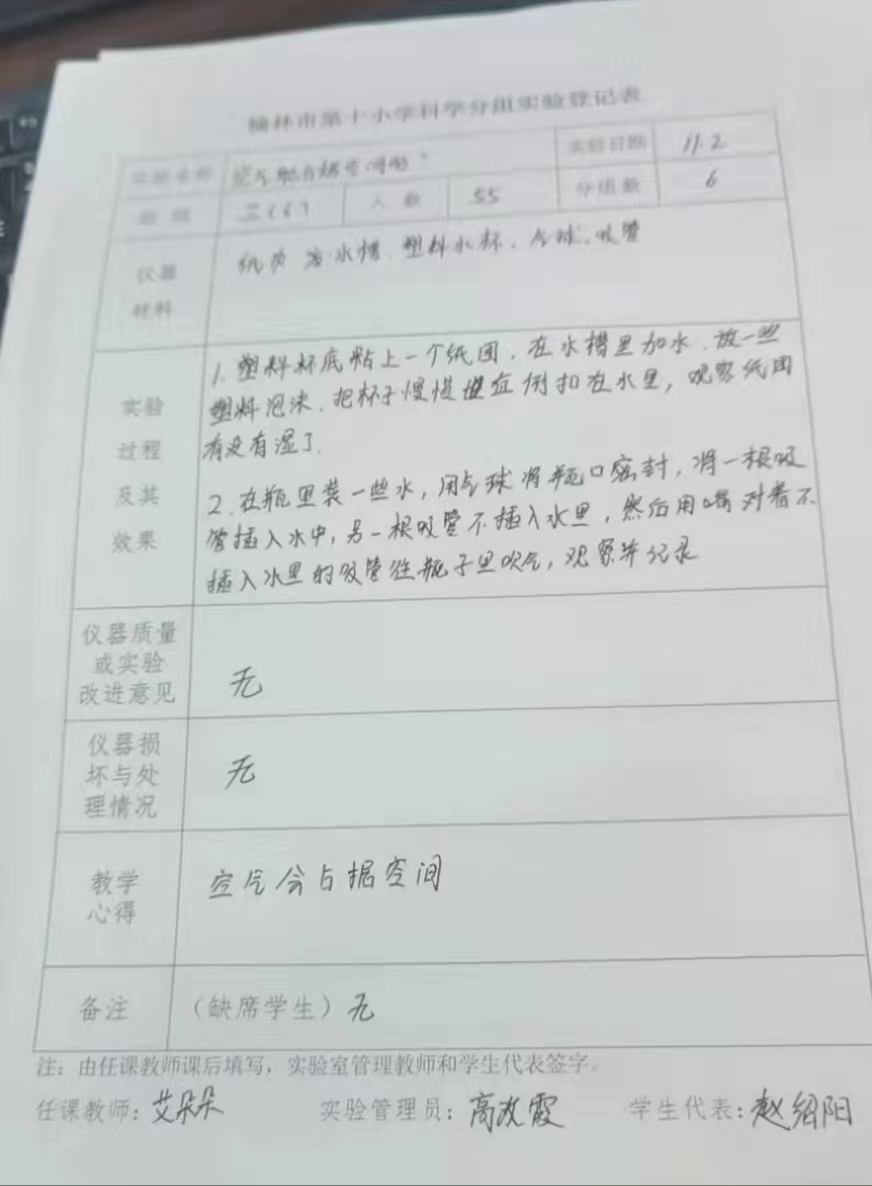 榆林市第十小学科学分组实验登记表
实验名称 空气能占据空间吗? 实验日期 11.2
班级 三(6) 人数 55 分组数 6
仪器材料 水槽、塑料水杯、气球、吸管
实验过程及其效果
1. 塑料杯底粘上一个纸团,在水槽里加水,放一些
塑料泡沫.把杯子慢慢倒扣在水里,观察纸团
有没有湿了.
2.在瓶里装一些水,用气球将瓶口密封,将一根吸
管插入水中,另一根吸管不插入水里,然后用嘴对着不
插入水里的吸管往瓶子里吹气,观察并记录
仪器质量
或实验
改进意见
无
仪器损
坏与处
理情况
无
教学
心得
空气会占据空间
备注 (缺席学生)无
注:由任课教师课后填写,实验室管理教师和学生代表签字。
任课教师:艾朵朵 实验管理员:高改霞 学生代表:赵绍阳